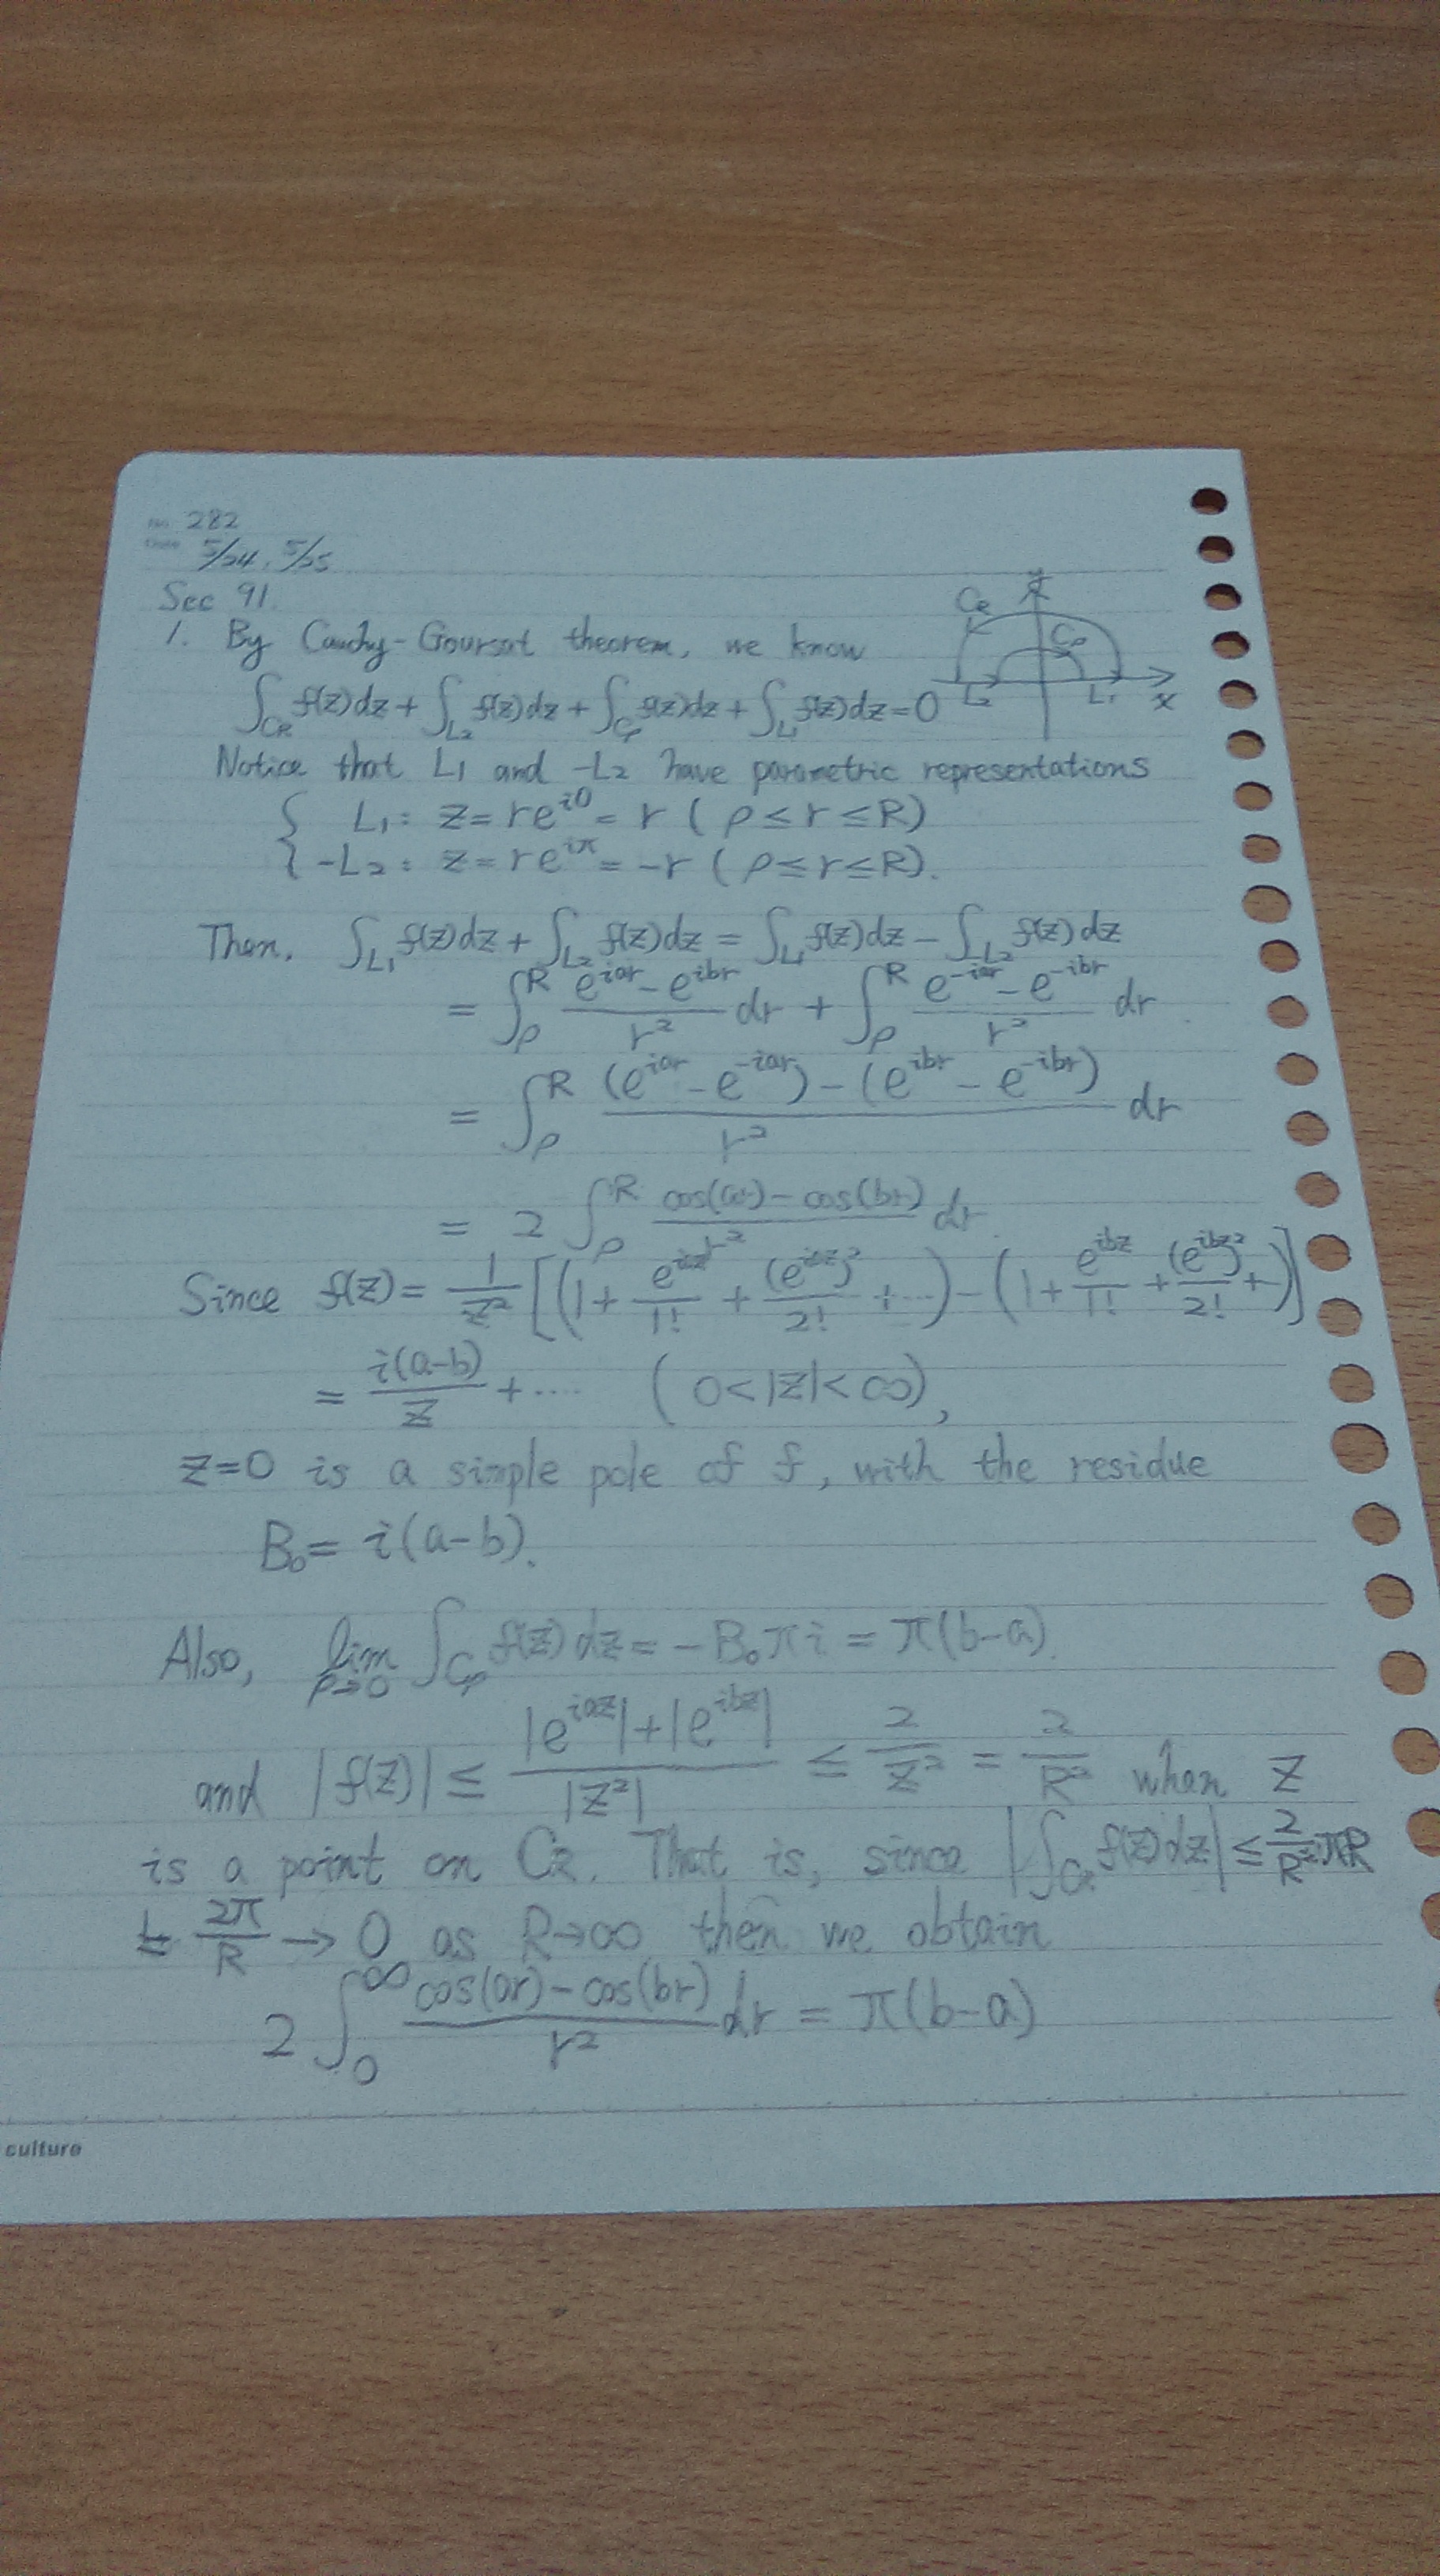 No. 282
Date 5/24, 5/25
Sec 91.
1. By Cauchy-Goursat theorem, we know
∫_{C_R} f(z)dz + ∫_{L_2} f(z)dz + ∫_{C_ρ} f(z)dz + ∫_{L_1} f(z)dz = 0
C_R C_ρ L_2 L_1 x
Notice that L_1 and -L_2 have parametric representations
{ L_1: z = re^{i0} = r ( ρ ≤ r ≤ R)
-L_2: z = re^{iπ} = -r ( ρ ≤ r ≤ R).
Then, ∫_{L_1} f(z)dz + ∫_{L_2} f(z)dz = ∫_{L_1} f(z)dz - ∫_{-L_2} f(z)dz
= ∫_ρ^R (e^{iar} - e^{ibr})/r² dr + ∫_ρ^R (e^{-iar} - e^{-ibr})/r² dr
= ∫_ρ^R ((e^{iar} - e^{-iar}) - (e^{ibr} - e^{-ibr}))/r² dr
= 2 ∫_ρ^R (cos(ar) - cos(br))/r² dr
Since f(z) = 1/z² [(1 + e^{iaz}/1! + (e^{iaz})²/2! + ...) - (1 + e^{ibz}/1! + (e^{ibz})²/2! + )]
= i(a-b)/z + .... ( 0 < |z| < ∞),
z=0 is a simple pole of f, with the residue
B_0 = i(a-b).
Also, lim_{ρ→0} ∫_{C_ρ} f(z)dz = -B_0 πi = π(b-a).
and |f(z)| ≤ (|e^{iaz}| + |e^{ibz}|)/|z²| ≤ 2/z² = 2/R² when z
is a point on C_R. That is, since |∫_{C_R} f(z)dz| ≤ 2/R² πR
= 2π/R → 0 as R→∞ then we obtain
2 ∫_0^∞ (cos(ar) - cos(br))/r² dr = π(b-a)
culture